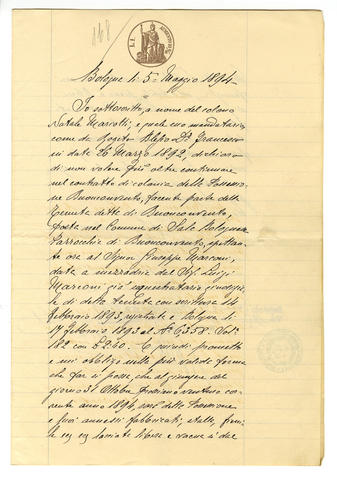 168
Bologna li 5 Maggio 1894
Io sottoscritto, a nome del colono
Natale Marcolli, e quale suo mandatario
come da Rogito Dr. Francesco
in data 26 Marzo 1892, dichiaro
di non volere più oltre continuare
nel contratto di colonia dello
Buonconvento, facente parte della
Tenuta detta di Buonconvento,
posta nel Comune di Sala Bolognese
Parrocchia di Buonconvento, spettante
ora al Signor Giuseppe Marconi,
data a mezzadria del Sig. Luigi
Marconi già sequestratario giudiziale
di detta tenuta con scrittura 14
febbraio 1893, registrata a Bologna li
17 febbraio 1893 al N. 6358 Vol.
182 con £ 2.60. E quindi prometto
e mi obbligo nella più valida forma
che far si possa, che al giungere del
giorno 31 Ottobre prossimo venturo cor-
rente anno 1894, sarò
e suoi annessi fabbricati, stalla,
lasciate libere e vacue